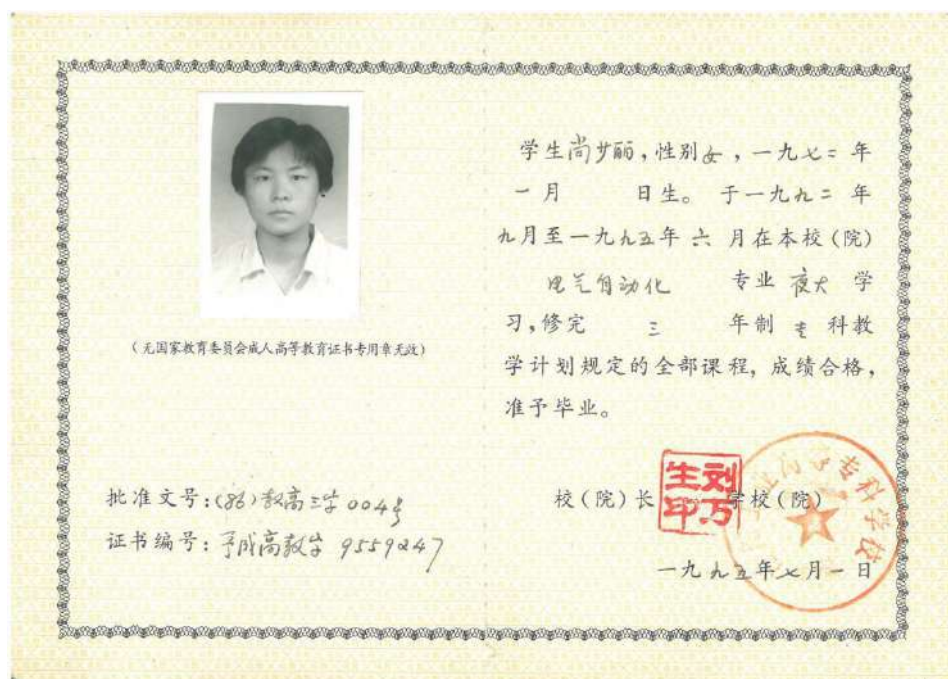 (无国家教育委员会成人高等教育证书专用章无效)
批准文号:(86)教高三字004号
证书编号:予成高教字 9559247
学生尚梦丽,性别女,一九七二年
一月 日生。于一九九二年
九月至一九九五年六月在本校(院)
电气自动化 专业 夜大 学
习,修完 三 年制 专 科教
学计划规定的全部课程,成绩合格,
准予毕业。
校(院)长 学校(院)
刘万生印
专科学校
一九九五年七月一日